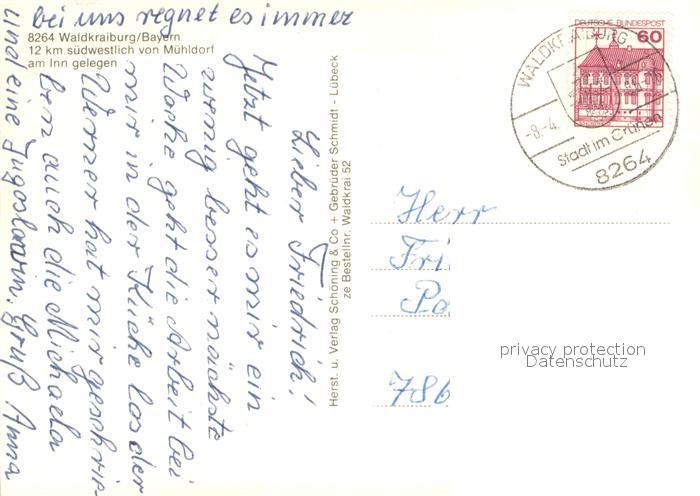 bei uns regnet es immer
8264 Waldkraiburg/Bayern
12 km südwestlich von Mühldorf
am Inn gelegen
Lieber Friedrich!
Jetzt geht es mir ein
wenig besser nächste
Woche geht die Arbeit bei
mir in der Küche los der
Werner hat mir geschrie-
ben auch die Michaela
und eine Jugoslawin. Gruß Anna
Herst. u. Verlag Schöning & Co + Gebrüder Schmidt - Lübeck
ze Bestellnr. Waldkrai 52
DEUTSCHE BUNDESPOST
60
WALDKRAIBURG
-8.-4.
Stadt im Grünen
8264
Herr
Fri
Po
786
privacy protection
Datenschutz